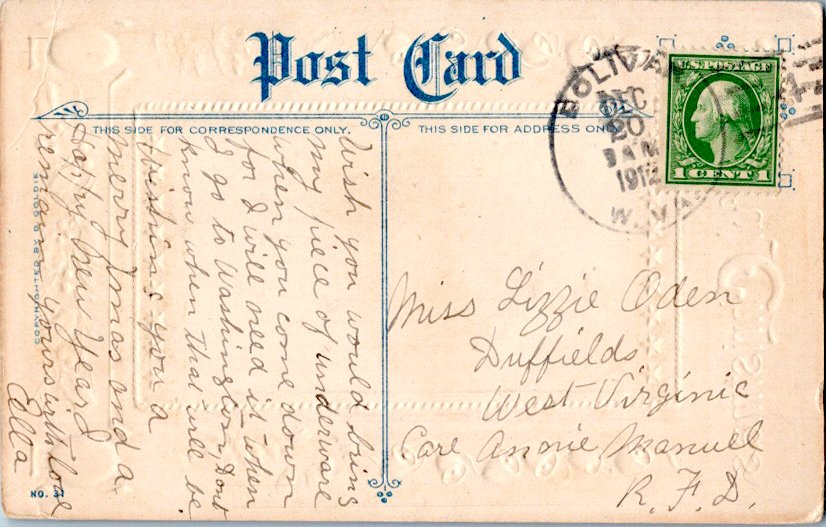 Post Card
THIS SIDE FOR CORRESPONDENCE ONLY.
THIS SIDE FOR ADDRESS ONLY
BOLIVAR
DEC
20
AM
1912
W. VA.
U.S. POSTAGE
1 CENT 1
Wish you would bring
my piece of underware
when you come down
for I will need it when
I go to Washington, Dont
know when that will be
Wishing you a
merry Xmas and a
Happy New Year I
remain yours with love
Ella
Miss Lizzie Oden
Duffields
West Virginia
Care Annie Manuell
R. F. D.
COPYRIGHTED BY S. GOLDIE
NO. 31